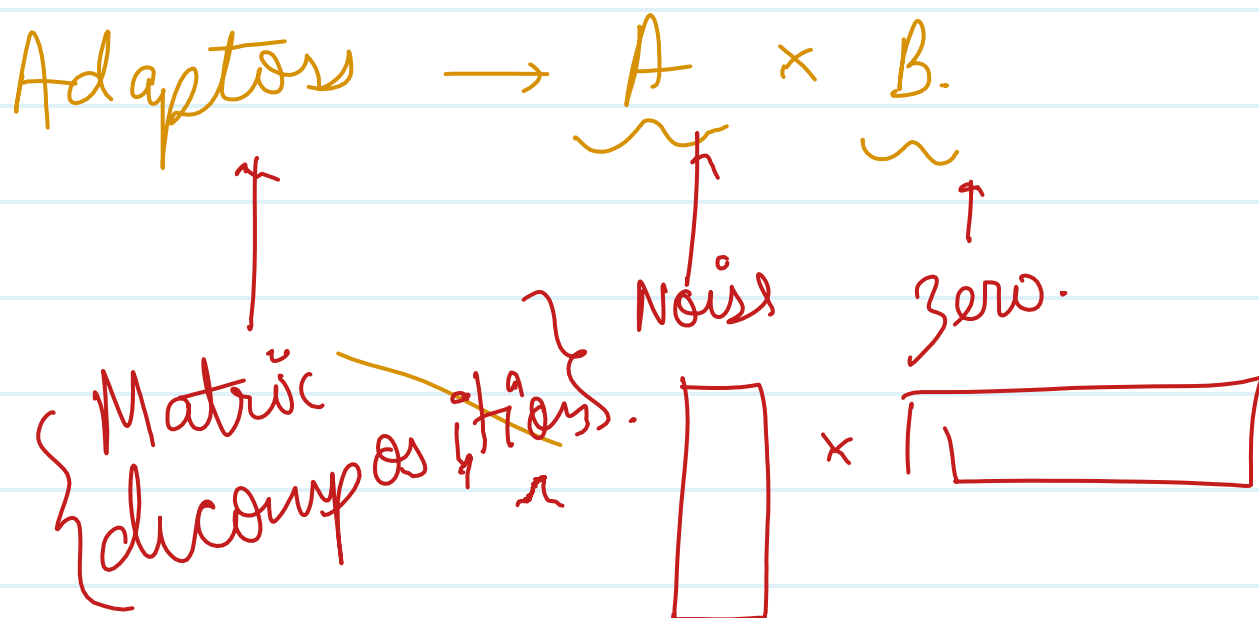 Adaptors → A × B.
Noise Zero.
Matrix
decompositions.
×